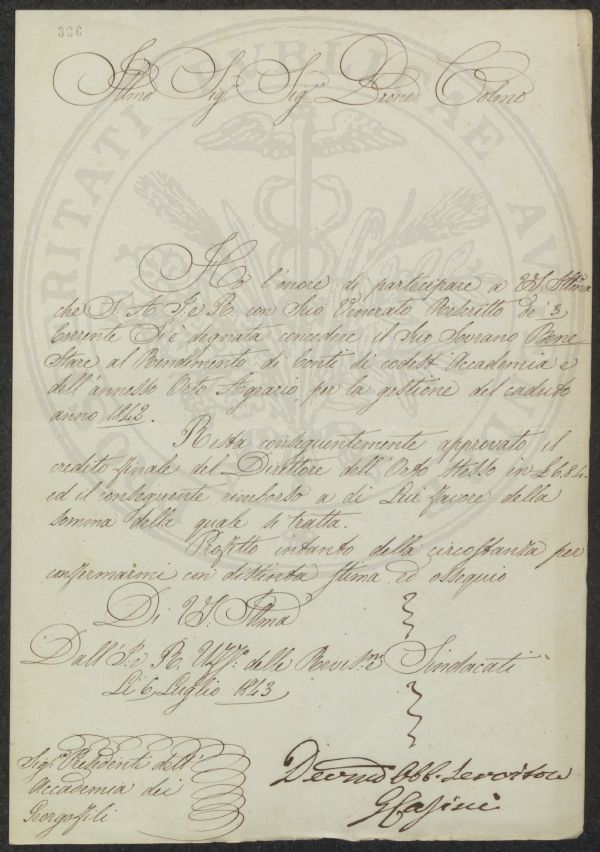 336
Illmo Sigr Sigr Prone Colmo
Ho l'onore di partecipare a VS. Illma
che S. A. I. e R. con Suo Venerato Rescritto de' 3
Corrente Si è degnata concedere il Suo Sovrano Bene
Stare al Rendimento di Conti di codest'Accademia e
dell'annesso Orto Agrario per la gestione del caduto
anno 1842.
Resta conseguentemente approvato il
credito finale del Direttore dell'Orto stesso in £ 6.8.4.
ed il conseguente rimborso a di Lui favore della
somma della quale si tratta.
Profitto intanto della circostanza per
confermarmi con distinta stima ed ossequio
Di VS. Illma
Dall'I. e R. Uffo. delle Revisni e Sindacati
Li 6 Luglio 1843
Sigr Presidente dell'
Accademia dei
Georgofili
Devmo Obb. Servitore
G Casini